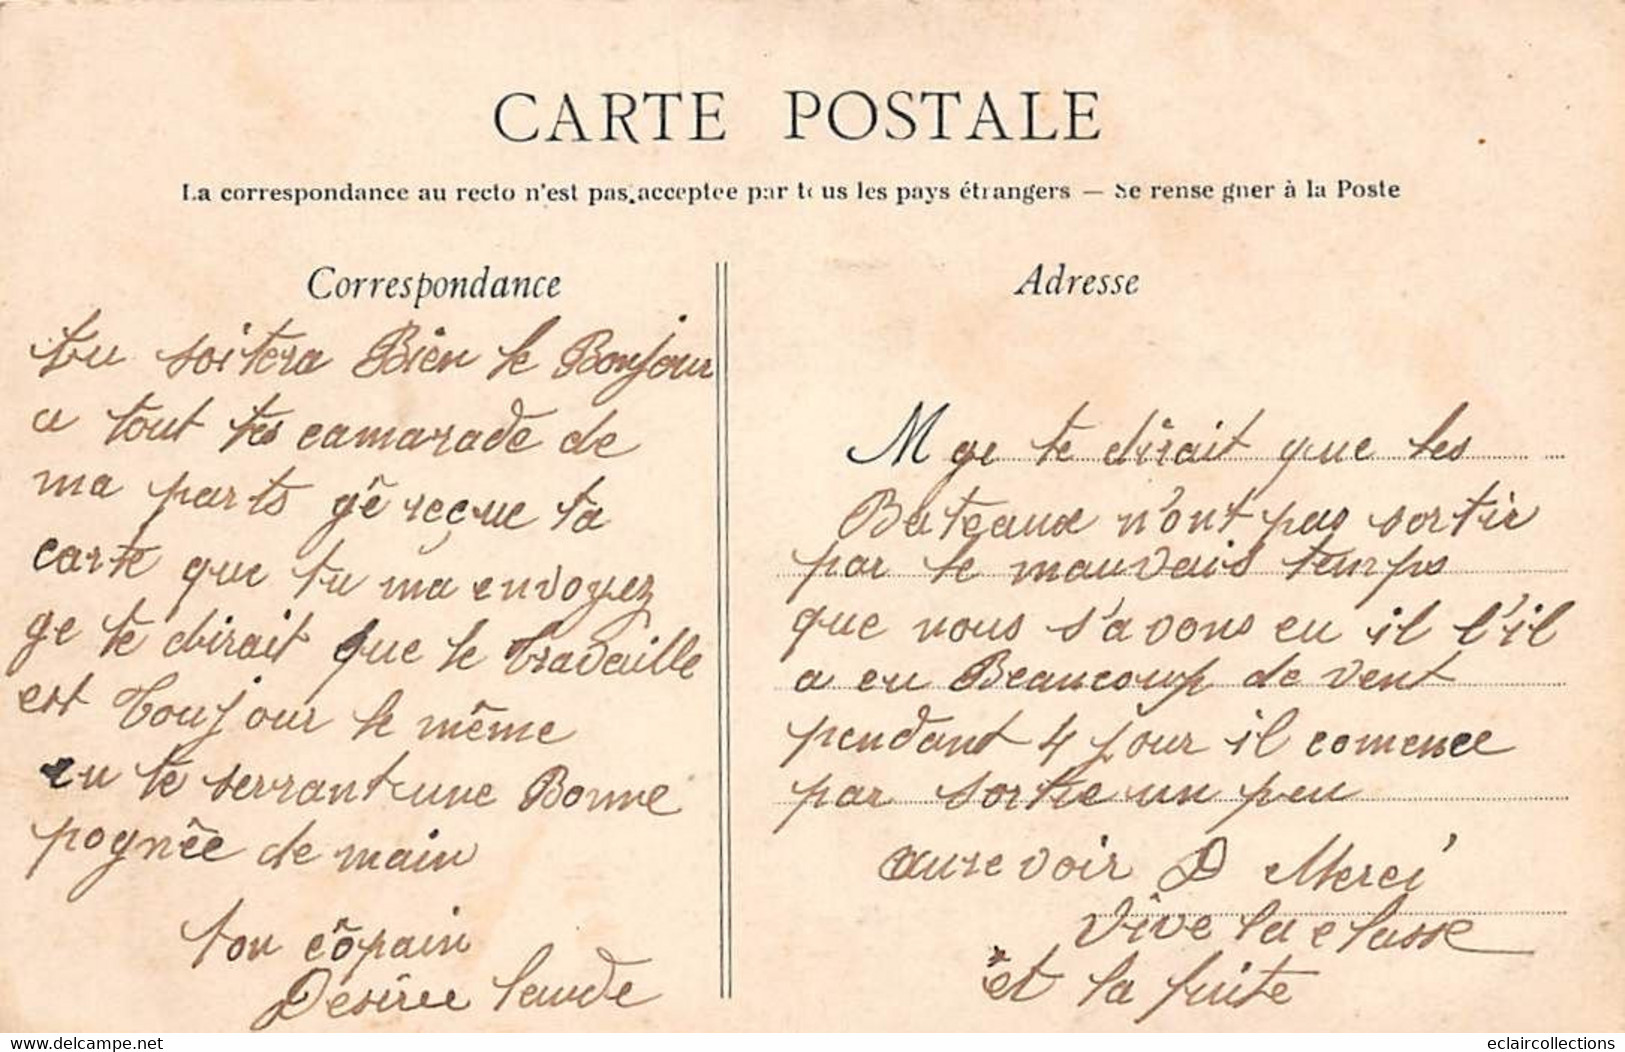 CARTE POSTALE
La correspondance au recto n'est pas acceptée par tous les pays étrangers — Se renseigner à la Poste
Correspondance
tu soitera Bien le Bonjour
a tout tes camarade de
ma parts gê reçue ta
carte que tu ma envoyez
ge te dirait que le travaille
est toujour le même
en te serrant une Bonne
pognêe de main
ton côpain
Desirée laude
Adresse
M ge te dirait que les
Bateaux n'ont pas sortir
par le mauvais temps
que nous s'avons eu il l'il
a eu Beaucoup de vent
pendant 4 jour il comence
par sortie un peu
aurevoir D Merci
Vive la classe
et la fuite
eclaircollections